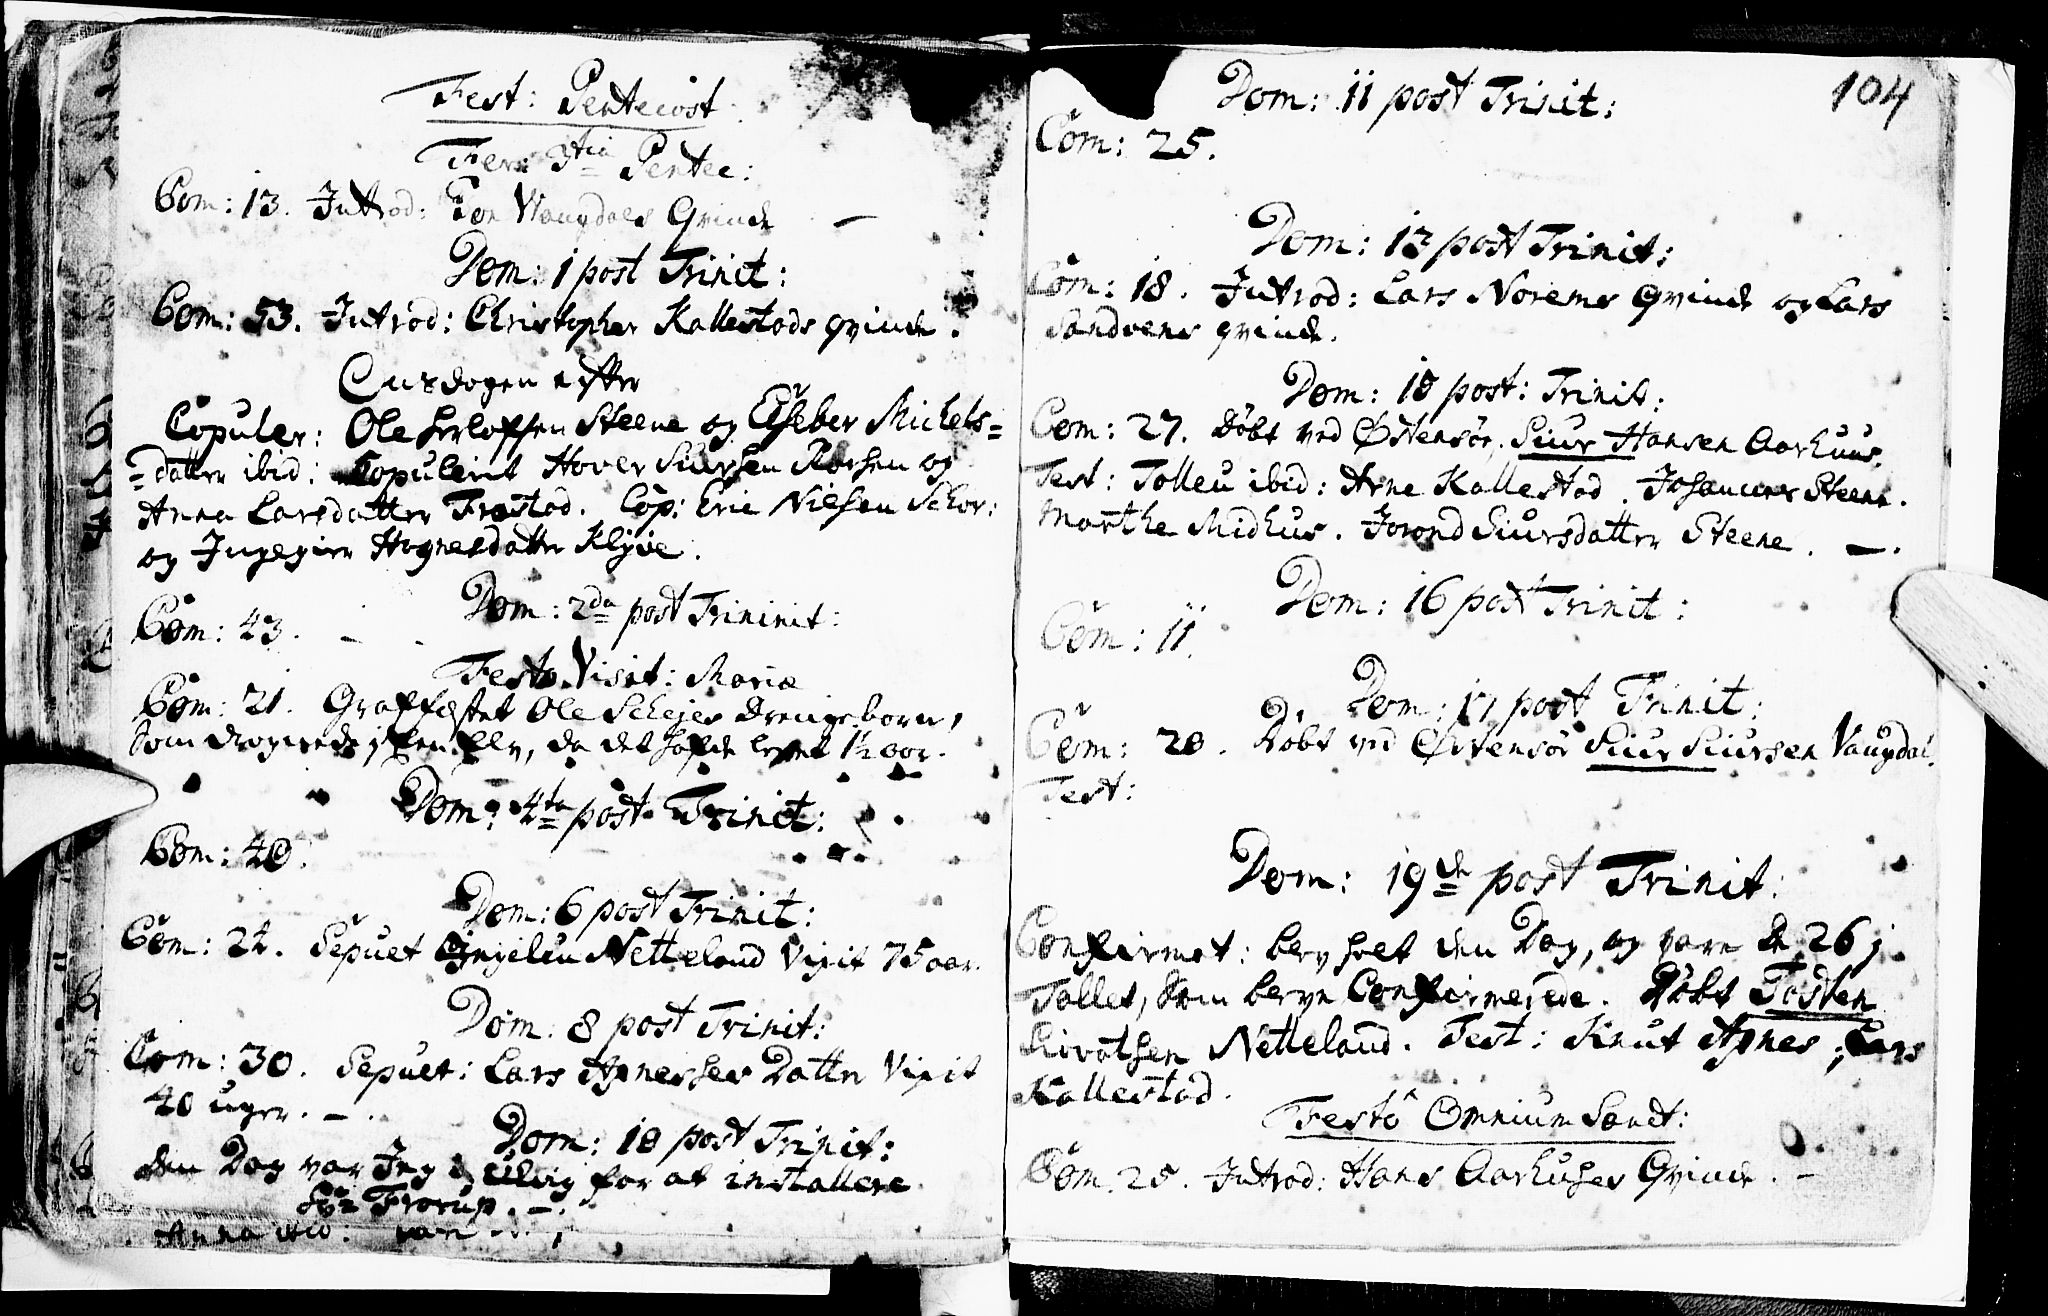 Fest: Pentecost
Fer: 3tia Pentec:
Com: 13. Introd: Jon Vangdals Qvinde —
Dom: 1 post Trinit:
Com: 53. Introd: Christopher Kallestads qvinde.
Onsdagen efter
Copuler: Ole Herlofsen Steene og Elsebe Michels=
=datter ibid: Copulerit Hover Siursen Rorsen og
Anna Larsdatter Frøstad. Cop: Eric Nielsen Schor:
og Ingegier Hognesdatter Klÿve.
Dom: 2da post Trininit:
Com: 43. —
Festo Visit: Mariæ
Com: 21. Graffæstet Ole Schejes Drengebarn,
som druknede j en Elv, da det hafde levet 1½ aar.
Dom: 4ta post Trinit:
Com: 40.
Dom: 6 post Trinit:
Com: 24. Sepult Engelen Netteland Vixit 75 aar.
Dom: 8 post Trinit:
Com: 30. Sepult: Lars Apnesses Datter Vixit
40 uger. —.
Dom: 10 post Trinit:
den Dag var Jeg j Ulvig for at installere
Hr Frorup. —.
Anna ibid:
104
Dom: 11 post Trinit:
Com: 25.
Dom: 13 post Trinit:
Com: 18. Introd: Lars Norems Qvinde og Lars
Sandvens qvinde.
Dom: 15 post: Trinit:
Com: 27. Döbt ved Østensöe. Siur Hansen Aarhuus.
Test: Tolleu ibid: Arne Kallestad. Johannes Steene.
Marthe Midhus. Jorond Siursdatter Steene. —.
Dom: 16 post Trinit:
Com: 11.
Dom: 17 post Trinit:
Com: 20. Döbt ved Østensöe Siur Siursen Vangdal.
Test:
Dom: 19de post Trinit:
Confirmat: blev holt den Dag, og vare de 26 j
Tallet, som bleve Confirmerede. Döbt Tosten
Siovatsen Netteland. Test: Knut Apnes, Lars
Kallestad.
Festo Omnium Sanct:
Com. 25. Introd: Hans Aarhuses Qvinde. —